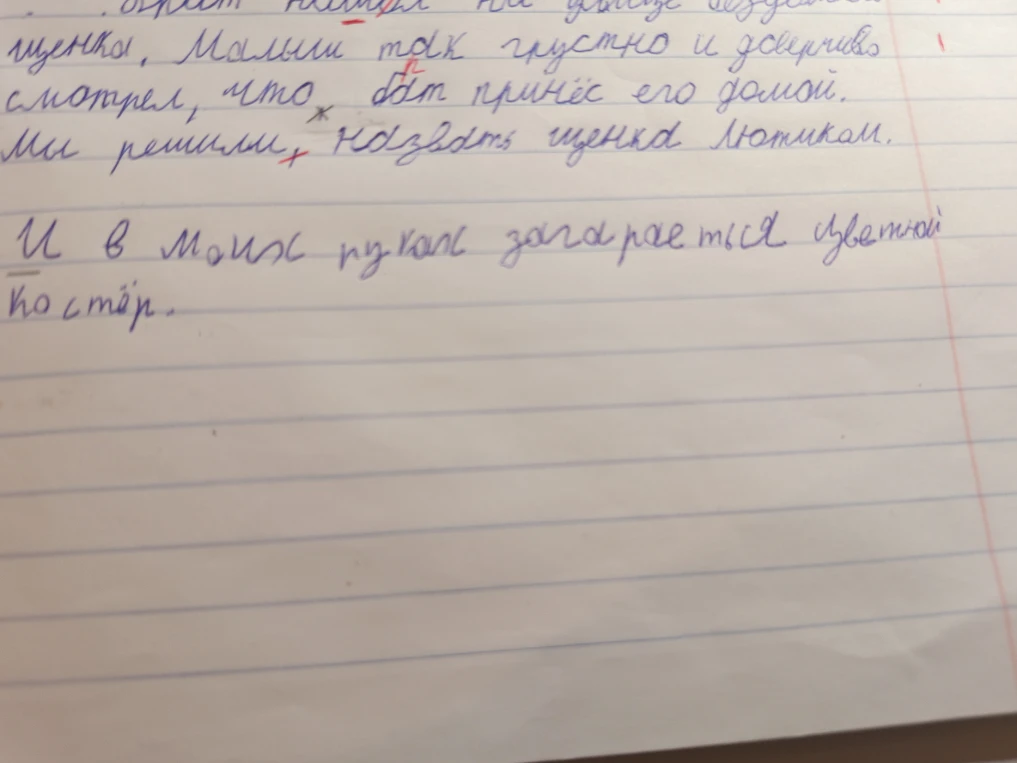 нашёл на улице
щенка. Малыш так грустно и доверчиво
смотрел, что брат принёс его домой.
Мы решили, назвать щенка Лютиком.
И в моих руках загарается цветной
костёр.